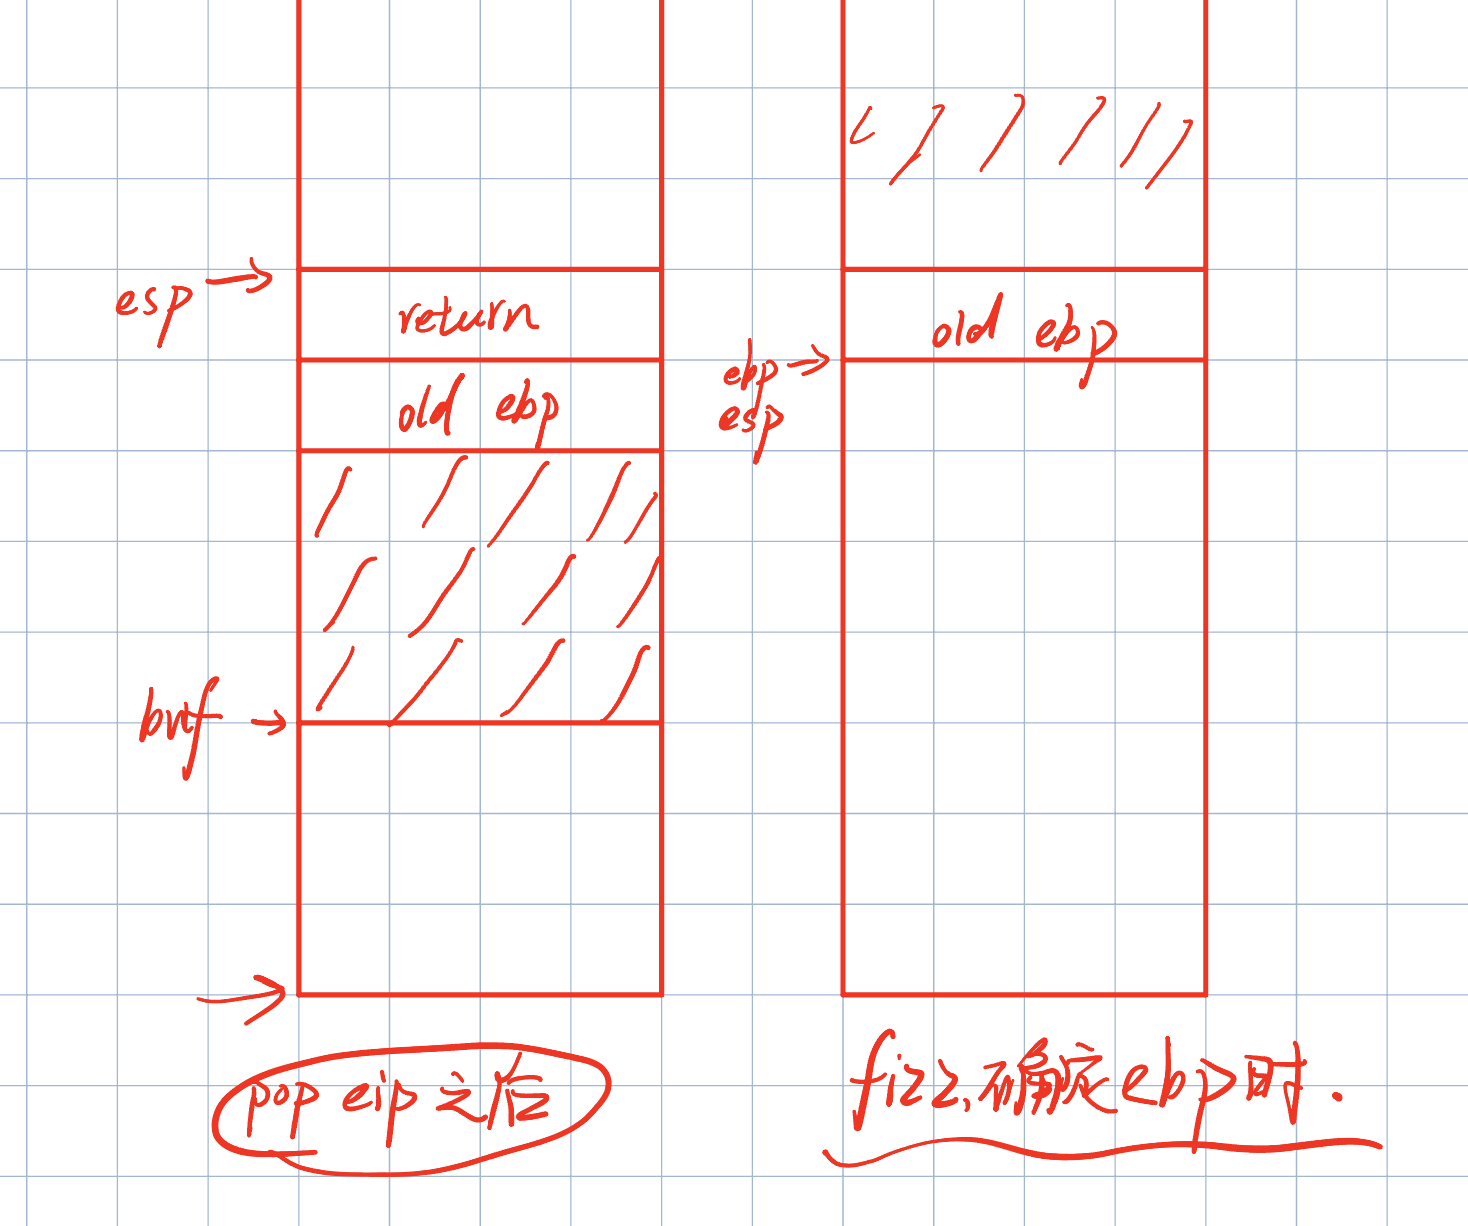 esp
return
old ebp
buf
pop eip 之后
old ebp
ebp
esp
fizz,确定ebp时.